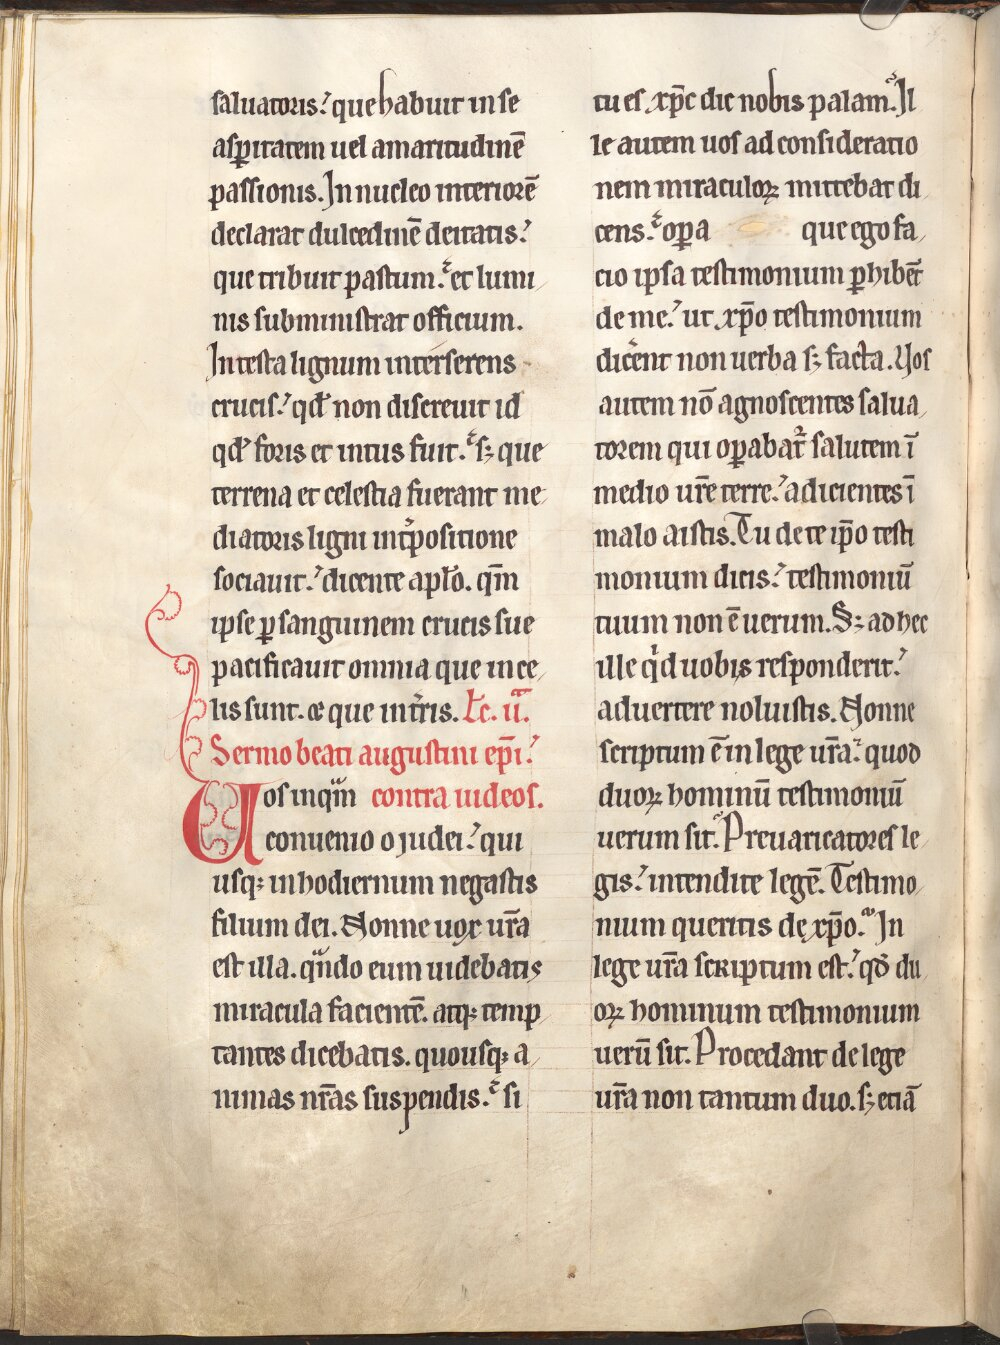 saluatoris. que habuit in se
asꝑitatem uel amaritudinē
passionis. In nucleo interiorē
declarat dulcedinē deitatis.
que tribuit pastum. et lumi
nis subministrat officium.
In testa lignum interserens
crucis. qđ non discreuit id
qđ foris et intus fuit. sꝫ que
terrena et celestia fuerant me
diatoris ligni int̉positione
sociauit. dicente apl̄o. qm̄
ipse ꝑ sanguinem crucis sue
pacificauit omnia que in ce
lis sunt. & que int̉ris. Lc. ii.
Sermo beati augustini ep̄i.
Uos inqm̄ contra iudeos.
conuenio o judei. qui
usqꝫ in hodiernum negastis
filium dei. Nonne uox ur̄a
est illa. qn̄do eum uidebatis
miracula facientē. atqꝫ temp
tantes dicebatis. quousqꝫ a
nimas nr̄as suspendis. si
tu es xp̄c dic nobis palam. Il
le autem uos ad consideratio
nem miraculoꝝ mittebat di
cens. oꝑa que ego fa
cio ipsa testimonium ꝑhibēt
de me. ut xp̄o testimonium
dic̉ent non uerba sꝫ facta. Uos
autem nō agnoscentes salua
torem qui oꝑabat᷑ salutem ī
medio ur̄e terre. adicientes ī
malo aistis. Tu de te ip̄o testi
monium dicis. testimoniū
tuum non ē uerum. Sꝫ ad hec
ille qͥd uobis responderit.
aduertere noluistis. Nonne
scriptum ē in lege ur̄a. quod
duoꝝ hominū testimoniū
uerum sit. Preuaricatores le
gis. intendite legē. Testimo
nium queritis de xp̄o. In
lege ur̄a scriptum est. qđ du
oꝝ hominum testimonium
uerū sit. Procedant de lege
ur̄a non tantum duo. sꝫ etiā